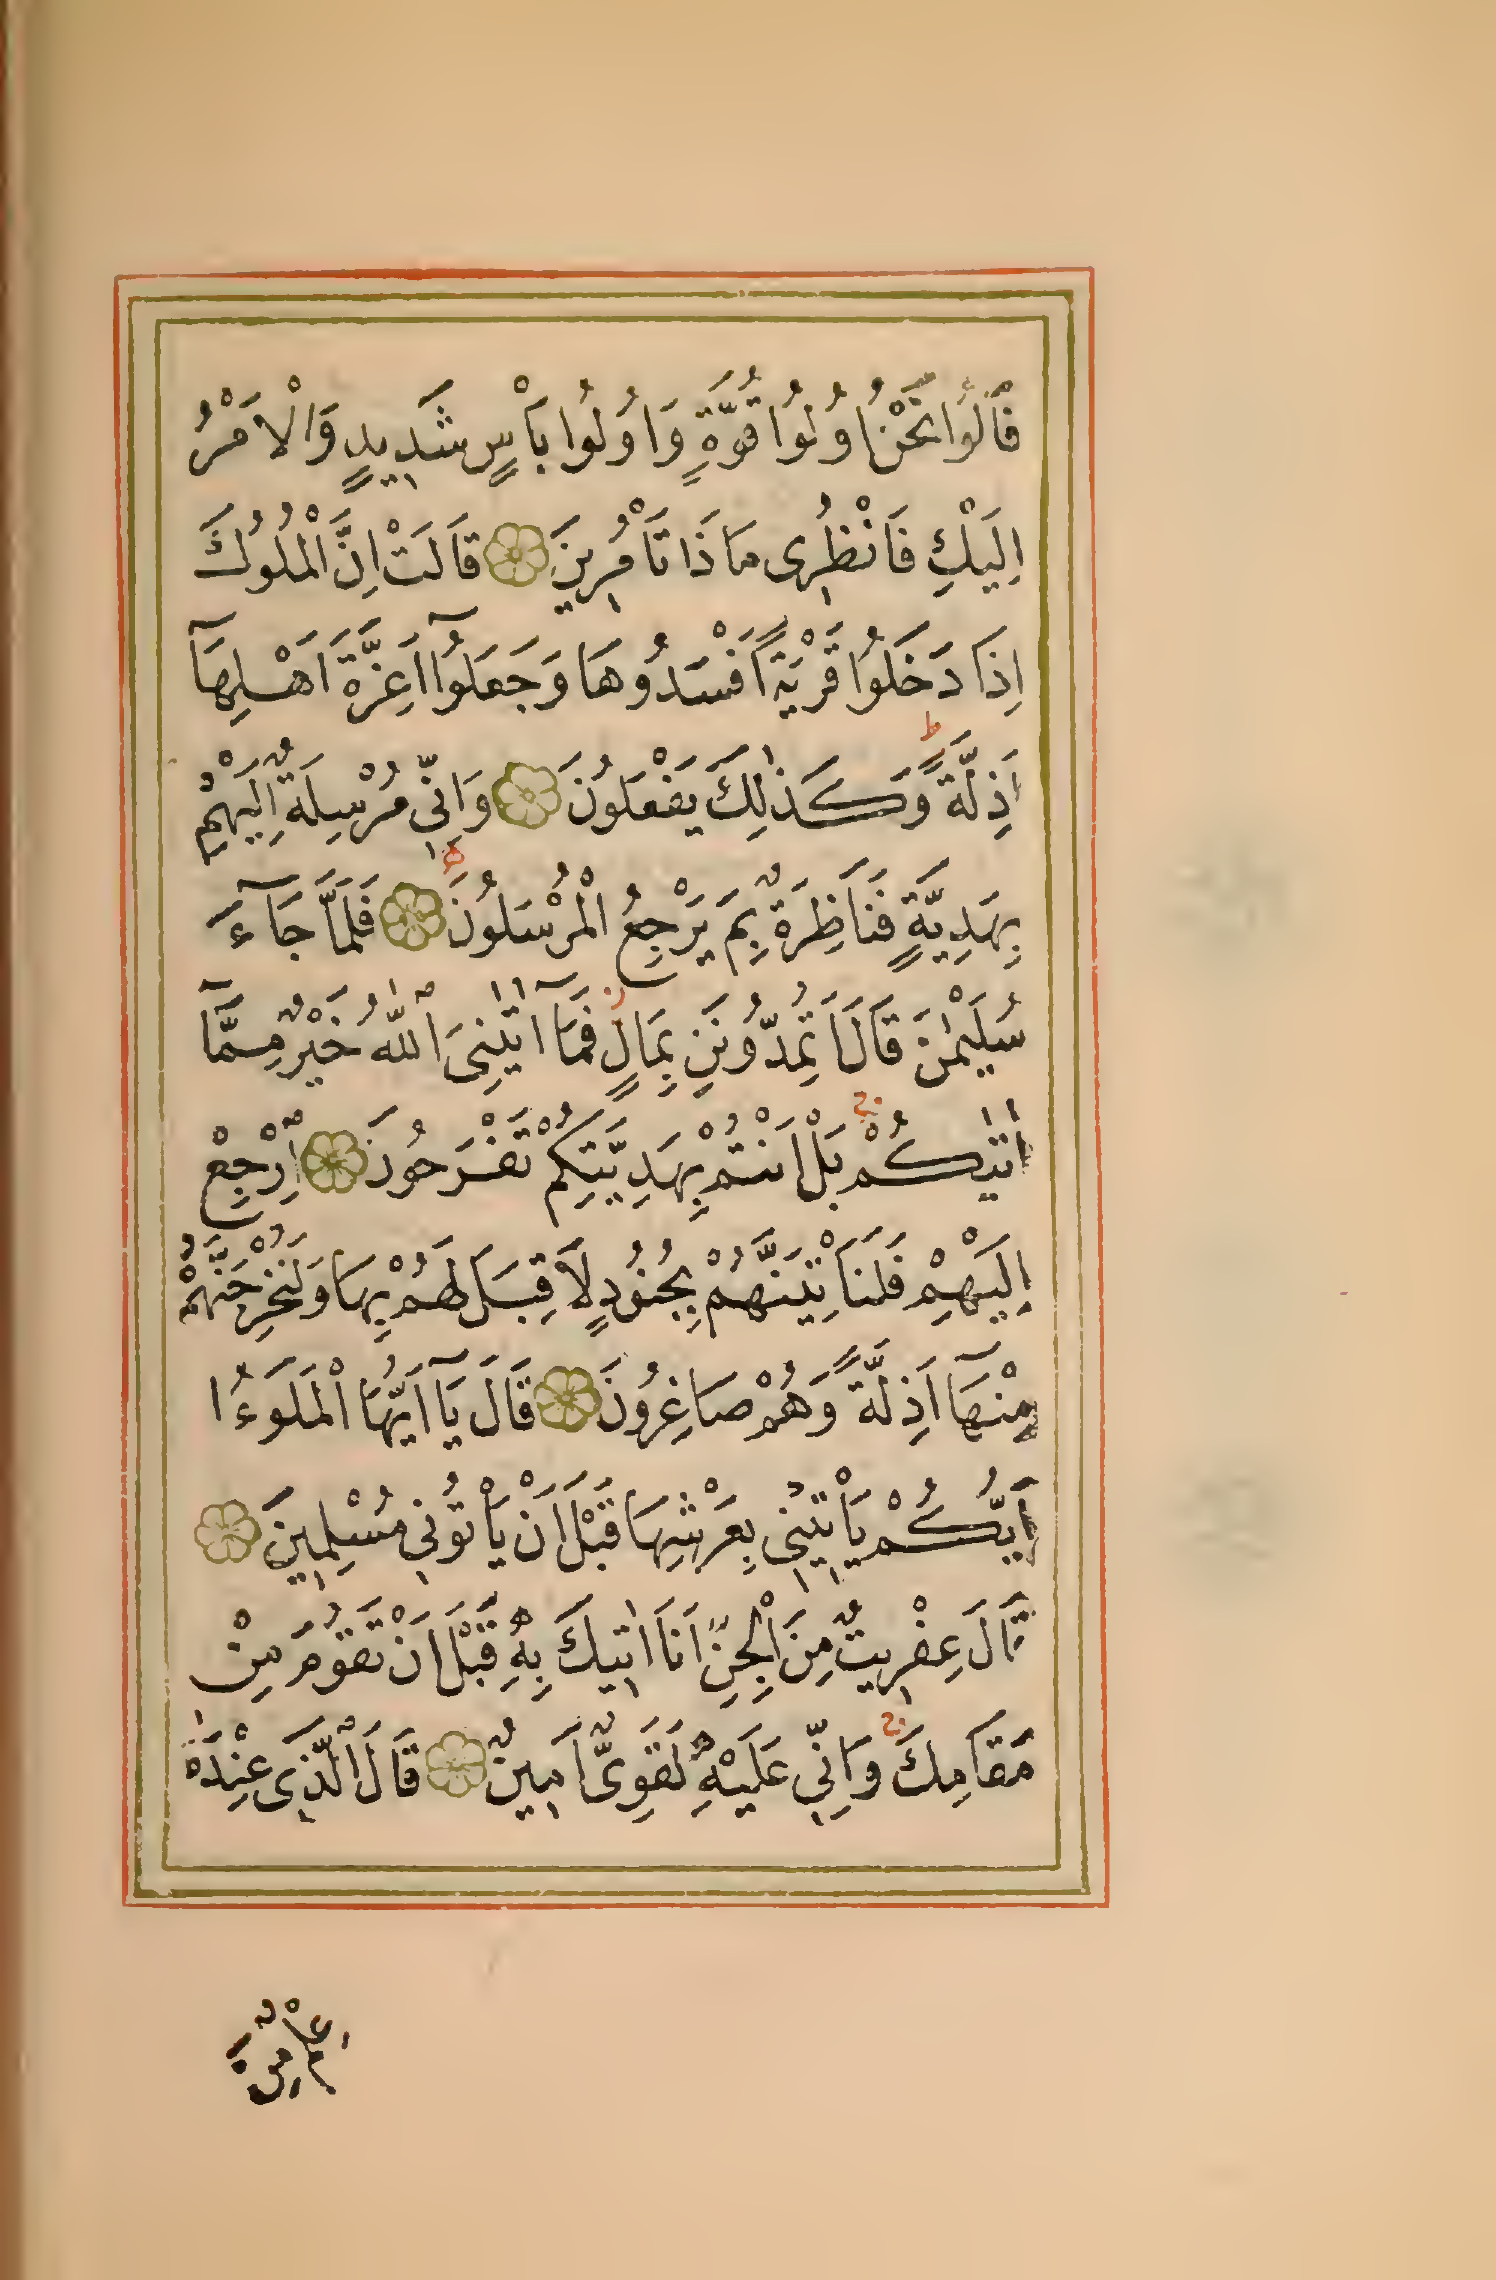 قَالُوا نَحْنُ اُولُوا قُوَّةٍ وَاُولُوا بَأْسٍ شَدِيدٍ وَالْاَمْرُ
اِلَيْكِ فَانْظُرِى مَاذَا تَأْمُرِينَ قَالَتْ اِنَّ الْمُلُوكَ
اِذَا دَخَلُوا قَرْيَةً اَفْسَدُوهَا وَجَعَلُوٓا اَعِزَّةَ اَهْلِهَآ
اَذِلَّةً ط وَكَذٰلِكَ يَفْعَلُونَ وَاِنِّى مُرْسِلَةٌ اِلَيْهِمْ
بِهَدِيَّةٍ فَنَاظِرَةٌ بِمَ يَرْجِعُ الْمُرْسَلُونَ فَلَمَّا جَآءَ
سُلَيْمٰنَ قَالَ اَتُمِدُّونَنِ بِمَالٍ ز فَمَآ اٰتٰينِىَ اللّٰهُ خَيْرٌ مِمَّآ
اٰتٰيكُمْ ج بَلْ اَنْتُمْ بِهَدِيَّتِكُمْ تَفْرَحُونَ اِرْجِعْ
اِلَيْهِمْ فَلَنَأْتِيَنَّهُمْ بِجُنُودٍ لَا قِبَلَ لَهُمْ بِهَا وَلَنُخْرِجَنَّهُمْ
مِنْهَآ اَذِلَّةً وَهُمْ صَاغِرُونَ قَالَ يَآ اَيُّهَا الْمَلَؤُا
اَيُّكُمْ يَأْتِينِى بِعَرْشِهَا قَبْلَ اَنْ يَأْتُونِى مُسْلِمِينَ
قَالَ عِفْرِيتٌ مِنَ الْجِنِّ اَنَا اٰتِيكَ بِهِ قَبْلَ اَنْ تَقُومَ مِنْ
مَقَامِكَ ج وَاِنِّى عَلَيْهِ لَقَوِىٌّ اَمِينٌ قَالَ الَّذِى عِنْدَهُ
عِلْمٌ مِنَ